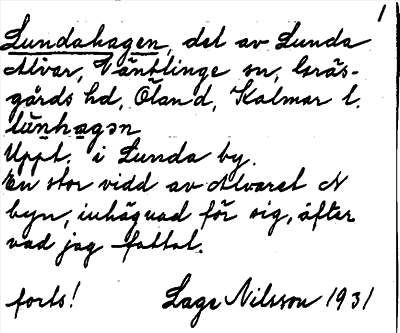 1
Lundahagen, del av Lunda
Alvar, Vänblinge sn, Gräs-
gårds hd, Öland, Kalmar l.
lŭnhagən
Uppt. i Lunda by.
En stor vidd av Alvaret N
byn, inhägnad för sig, äfter
vad jag fattat.
forts! Lage Nilsson 1931